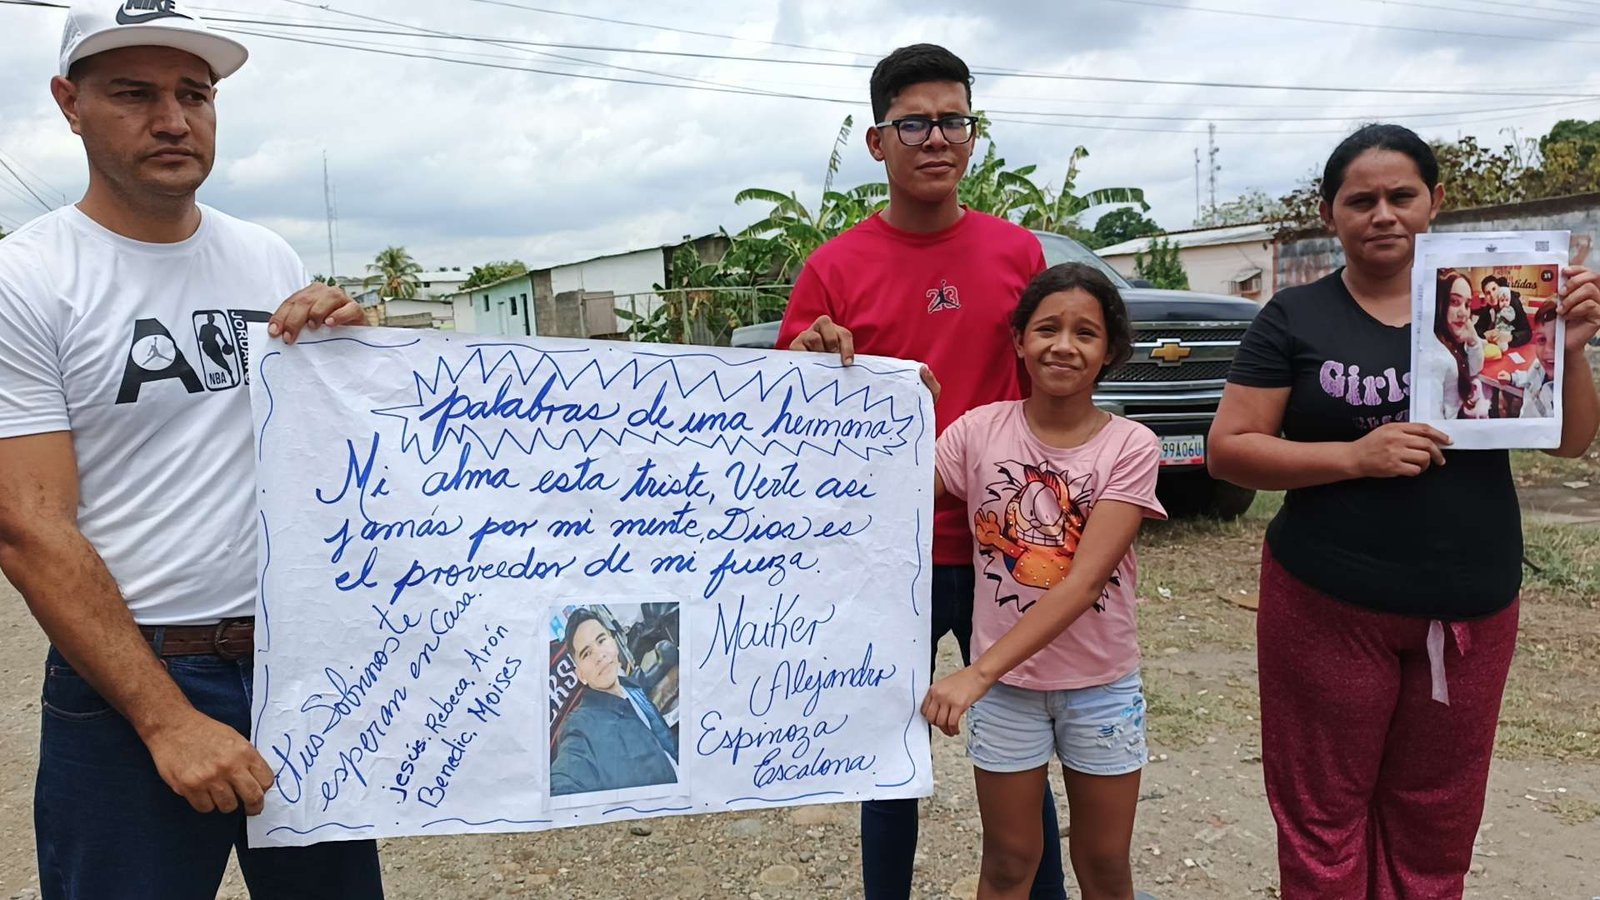 NIKE
JORDAN
NBA
23
palabras de una hermana.
Mi alma esta triste, Verte asi
jamás por mi mente, Dios es
el proveedor de mi fuerza.
tus Sobrinos te
esperan en Casa.
Jesús. Rebeca, Arón
Benedic, Moises
Maiker
Alejandro
Espinoza
Escalona.
99A06U
Girls